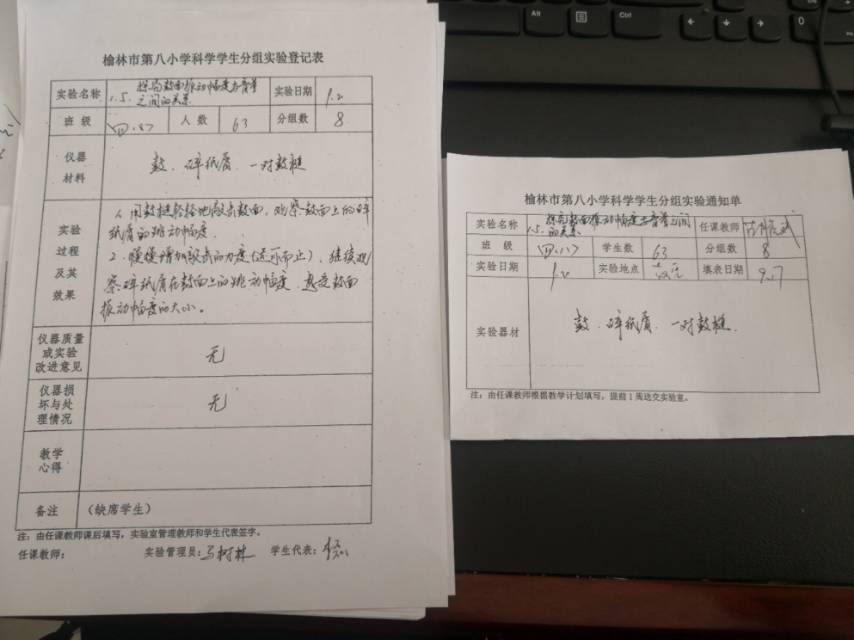 榆林市第八小学科学学生分组实验登记表
实验名称 1.5. 探究鼓面振动幅度与音量之间的关系 实验日期
班 级 四. 人 数 63 分组数 8
仪器材料 鼓、碎纸屑、一对鼓槌
实验过程及其效果
1、用鼓槌轻轻地敲击鼓面,观察鼓面上的碎
纸屑的跳动幅度
2、慢慢增加敲击的力度(适可而止),继续观
察碎纸屑在鼓面上的跳动幅度,感受鼓面
振动幅度的大小。
仪器质量或实验改进意见 无
仪器损坏与处理情况 无
教学心得
备注 (缺席学生)
注:由任课教师课后填写,实验室管理教师和学生代表签字。
任课教师: 实验管理员: 学生代表:
榆林市第八小学科学学生分组实验通知单
实验名称 1.5. 探究鼓面振动幅度与音量之间的关系 任课教师
班 级 四. 学生数 63 分组数 8
实验日期 实验地点 填表日期
实验器材 鼓、碎纸屑、一对鼓槌.
注:由任课教师根据教学计划填写,提前1周送交实验室。
Alt
Ctrl